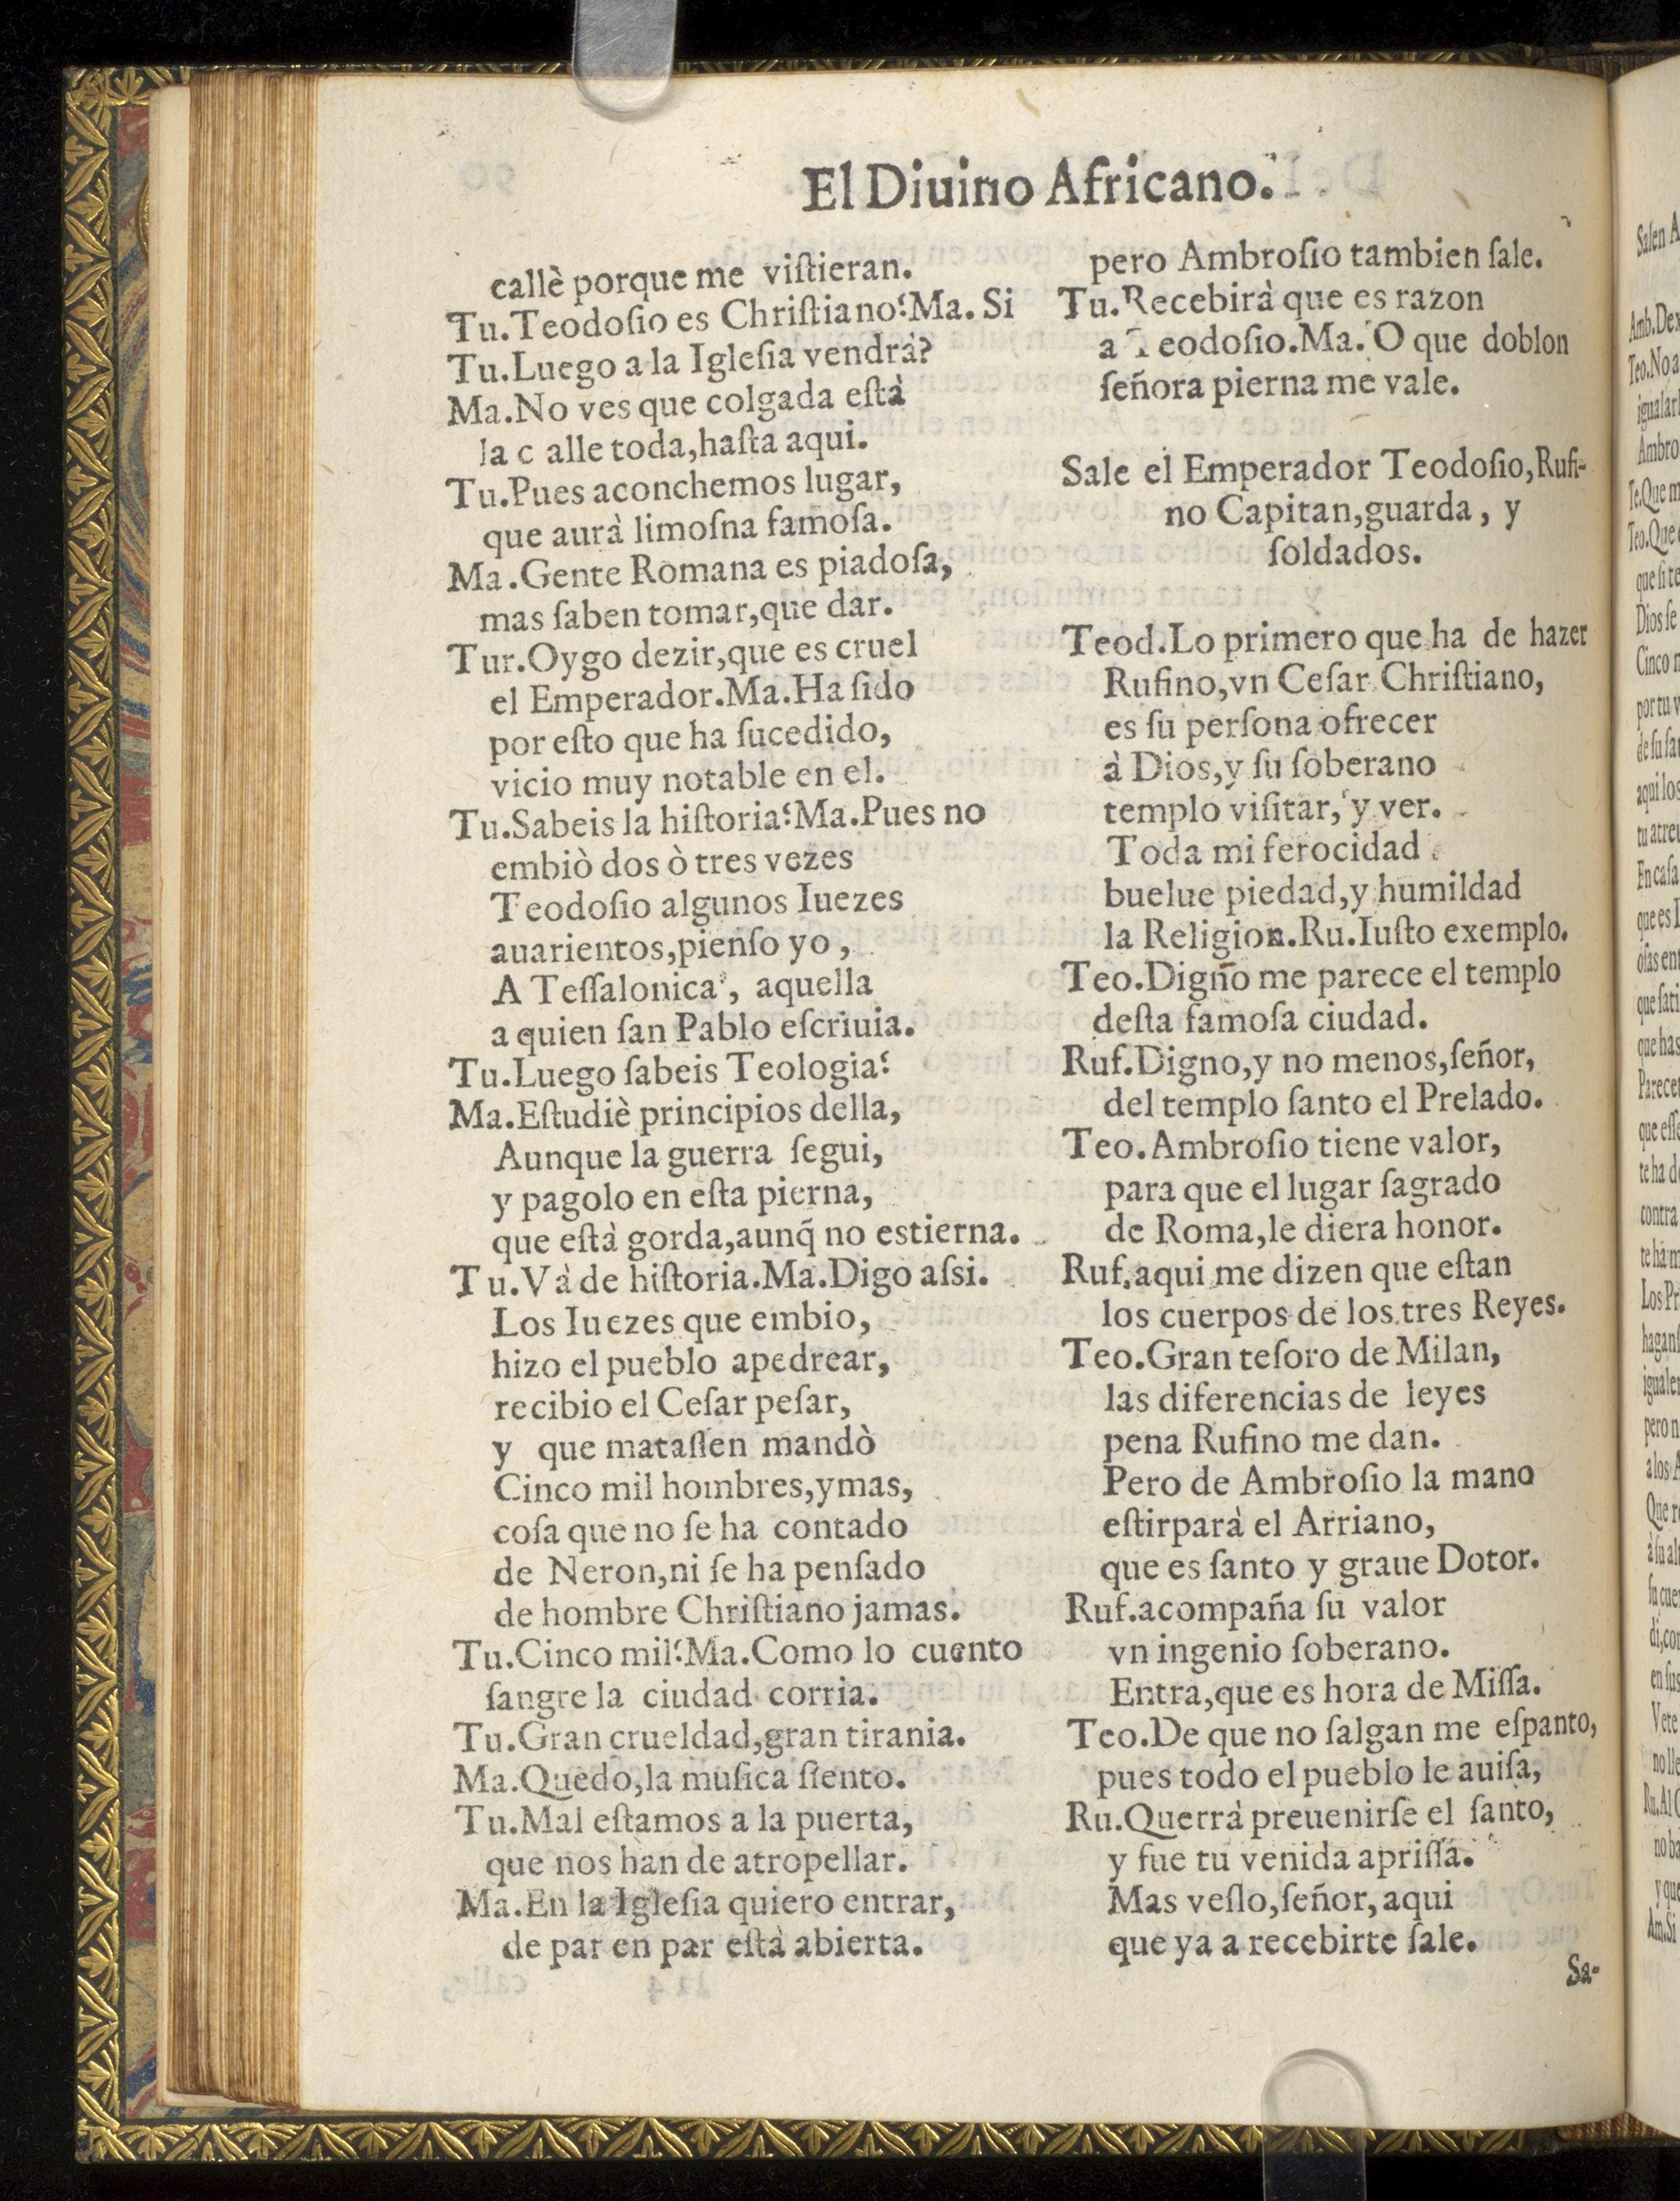 El Diuino Africano.
callè porque me viſtieran.
Tu.Teodoſio es Chriſtiano?Ma. Si
Tu.Luego a la Igleſia vendrà?
Ma.No ves que colgada eſtà
la c alle toda,haſta aqui.
Tu.Pues aconchemos lugar,
que aurà limoſna famoſa.
Ma.Gente Romana es piadoſa,
mas ſaben tomar,que dar.
Tur.Oygo dezir,que es cruel
el Emperador.Ma.Ha ſido
por eſto que ha ſucedido,
vicio muy notable en el.
Tu.Sabeis la hiſtoria?Ma.Pues no
embiò dos ò tres vezes
Teodoſio algunos Iuezes
auarientos,pienſo yo,
A Teſſalonica, aquella
a quien ſan Pablo eſcriuia.
Tu.Luego ſabeis Teologia?
Ma.Eſtudiè principios della,
Aunque la guerra ſegui,
y pagolo en eſta pierna,
que eſtà gorda,aunq̃ no estierna.
Tu.Và de hiſtoria.Ma.Digo aſsi.
Los Iuezes que embio,
hizo el pueblo apedrear,
recibio el Ceſar peſar,
y que mataſſen mandò
Cinco mil hombres,ymas,
coſa que no ſe ha contado
de Neron,ni ſe ha penſado
de hombre Chriſtiano jamas.
Tu.Cinco mil?Ma.Como lo cuento
ſangre la ciudad corria.
Tu.Gran crueldad,gran tirania.
Ma.Quedo,la muſica ſiento.
Tu.Mal eſtamos a la puerta,
que nos hàn de atropellar.
Ma.En la Igleſia quiero entrar,
de par en par eſtà abierta.
pero Ambroſio tambien ſale.
Tu.Recebirà que es razon
a Teodoſio.Ma.O que doblon
ſeñora pierna me vale.
Sale el Emperador Teodoſio,Rufi-
no Capitan,guarda, y
ſoldados.
Teod.Lo primero que ha de hazer
Rufino,vn Ceſar Chriſtiano,
es ſu perſona ofrecer
à Dios,y ſu ſoberano
templo viſitar, y ver.
Toda mi ferocidad
buelue piedad,y humildad
la Religion.Ru.Iuſto exemplo.
Teo.Digno me parece el templo
deſta famoſa ciudad.
Ruf.Digno,y no menos,ſeñor,
del templo ſanto el Prelado.
Teo.Ambroſio tiene valor,
para que el lugar ſagrado
de Roma,le diera honor.
Ruf.aqui me dizen que eſtan
los cuerpos de los tres Reyes.
Teo.Gran teſoro de Milan,
las diferencias de leyes
pena Rufino me dan.
Pero de Ambroſio la mano
eſtirparà el Arriano,
que es ſanto y graue Dotor.
Ruf.acompaña ſu valor
vn ingenio ſoberano.
Entra,que es hora de Miſſa.
Teo.De que no ſalgan me eſpanto,
pues todo el pueblo le auiſa,
Ru.Querrà preuenirſe el ſanto,
y fue tu venida apriſſa.
Mas veſlo,ſeñor,aqui
que ya a recebirte ſale.
Sa-